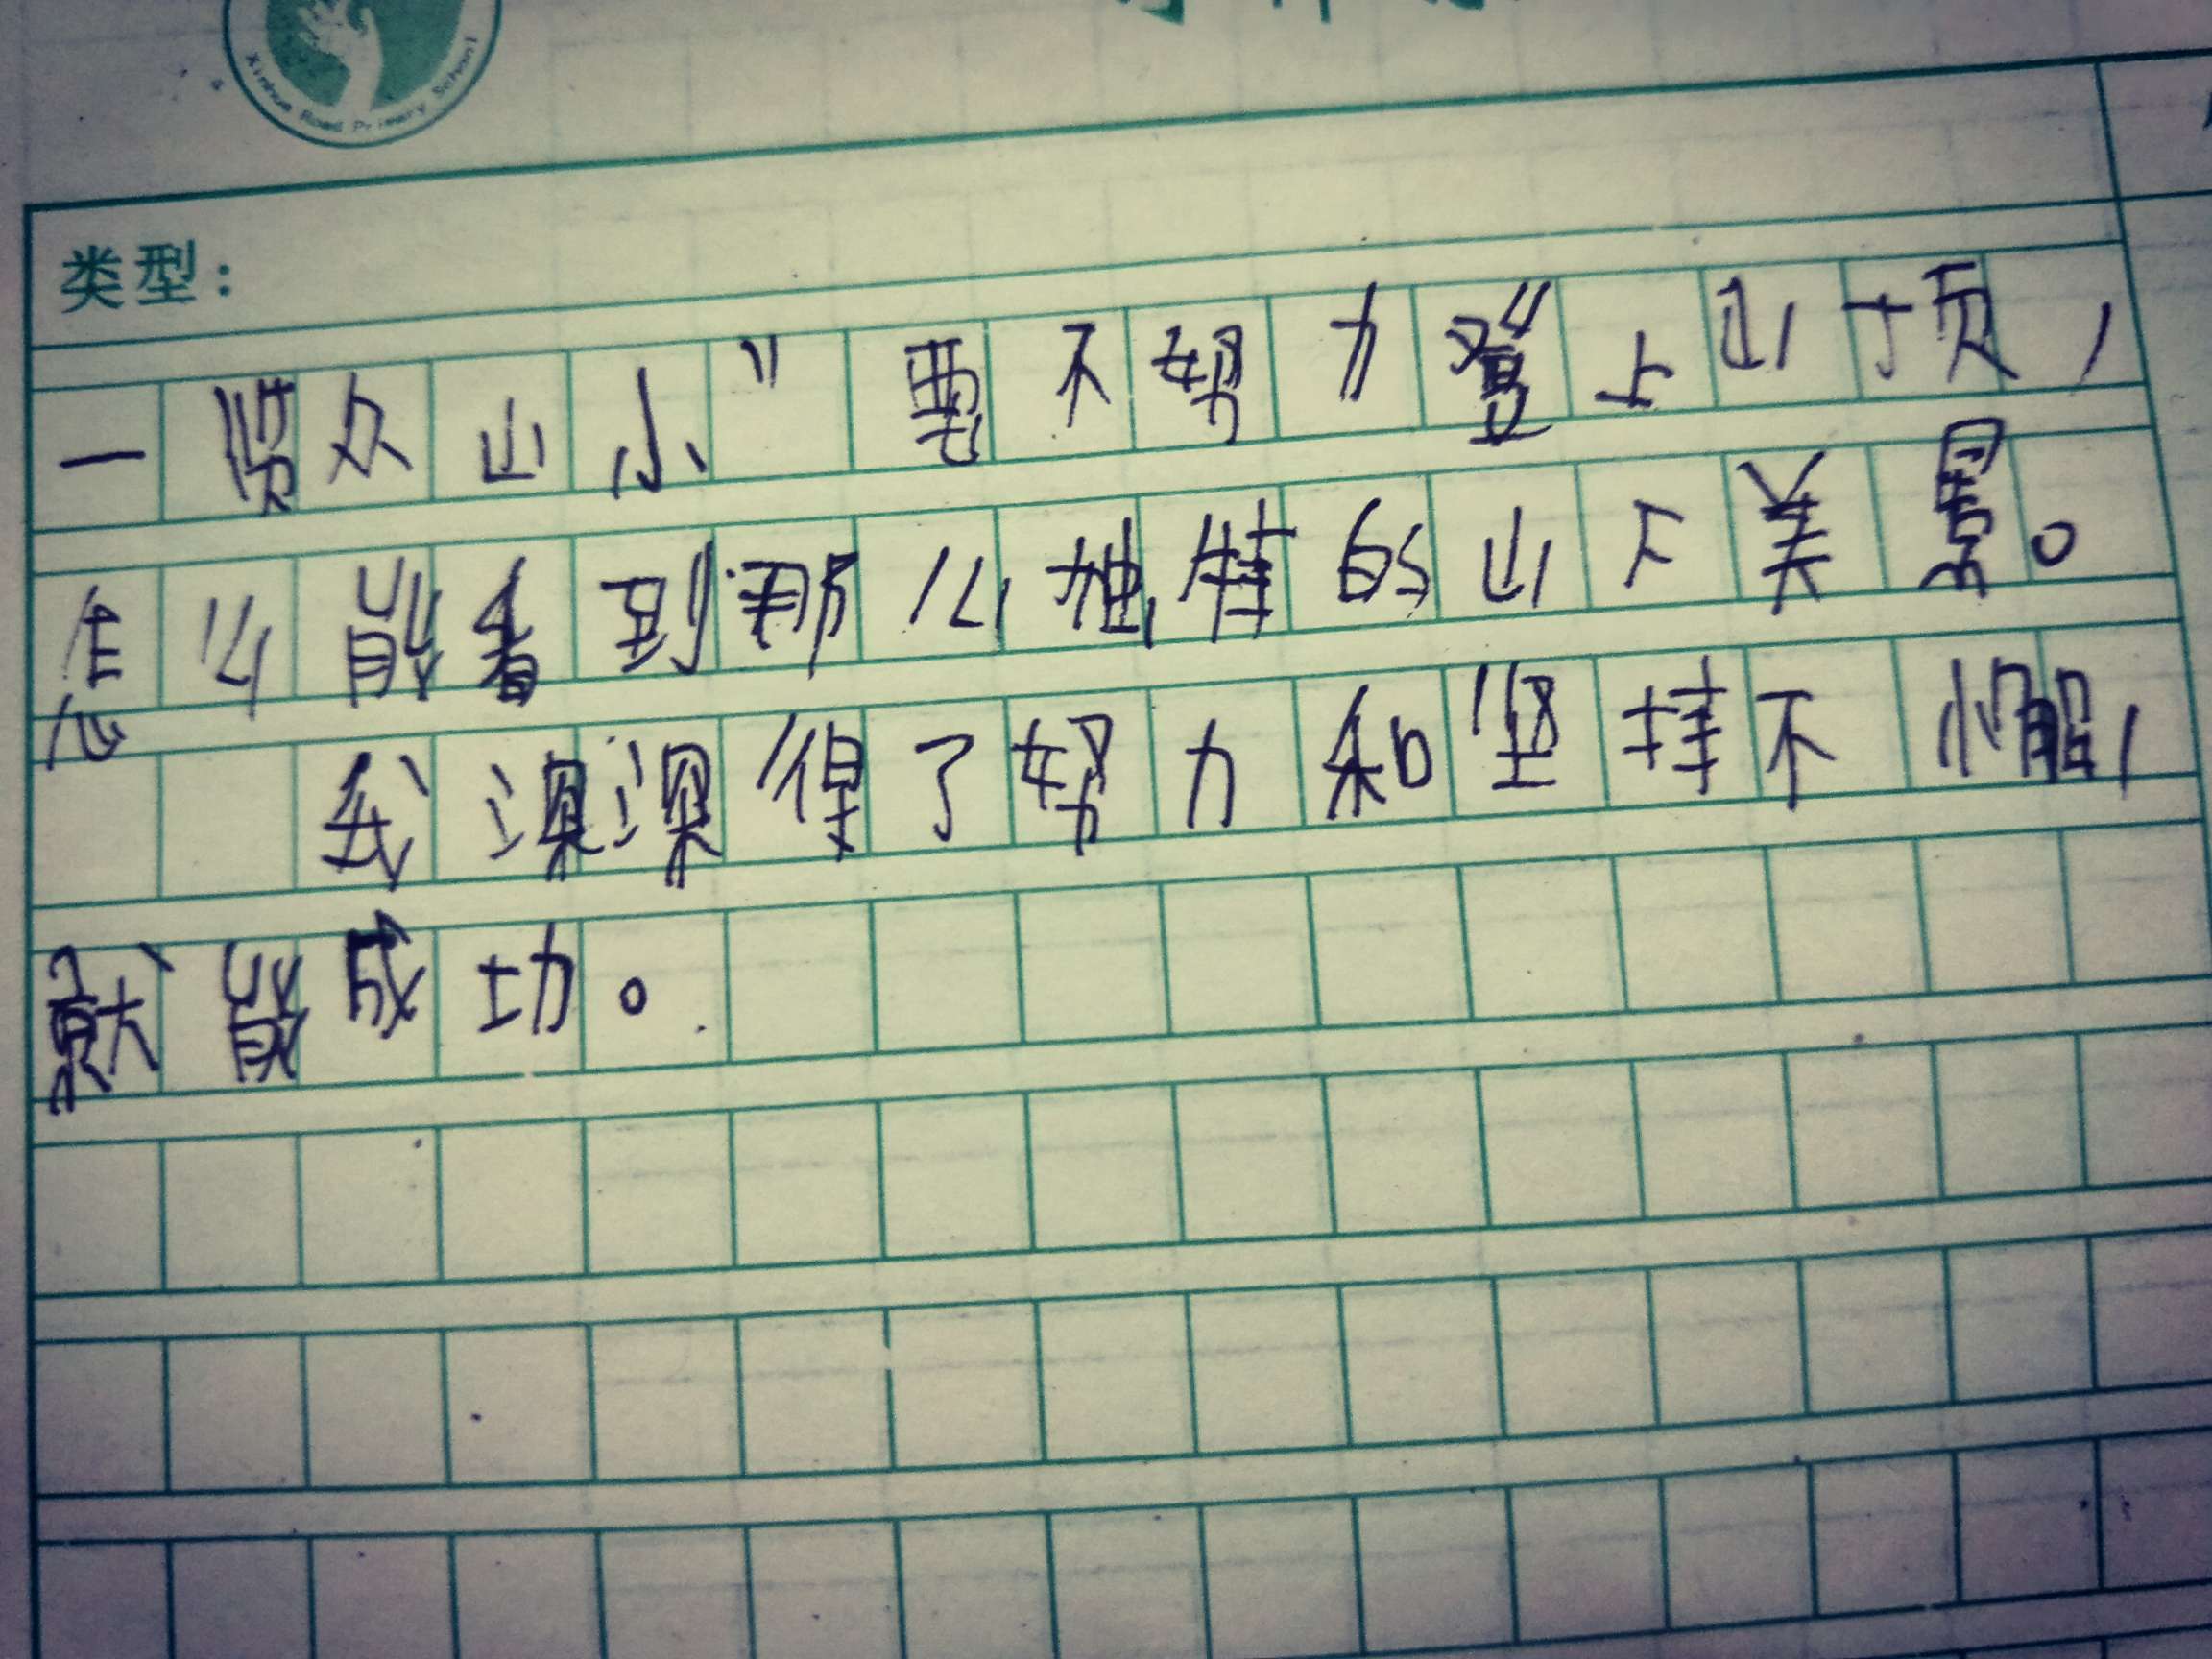 Xinhua Road Primary School
类型：
一览众山小”要不努力登上山顶，
怎么能看到那么独特的山下美景。
我深深得了努力和坚持不懈，
就能成功。